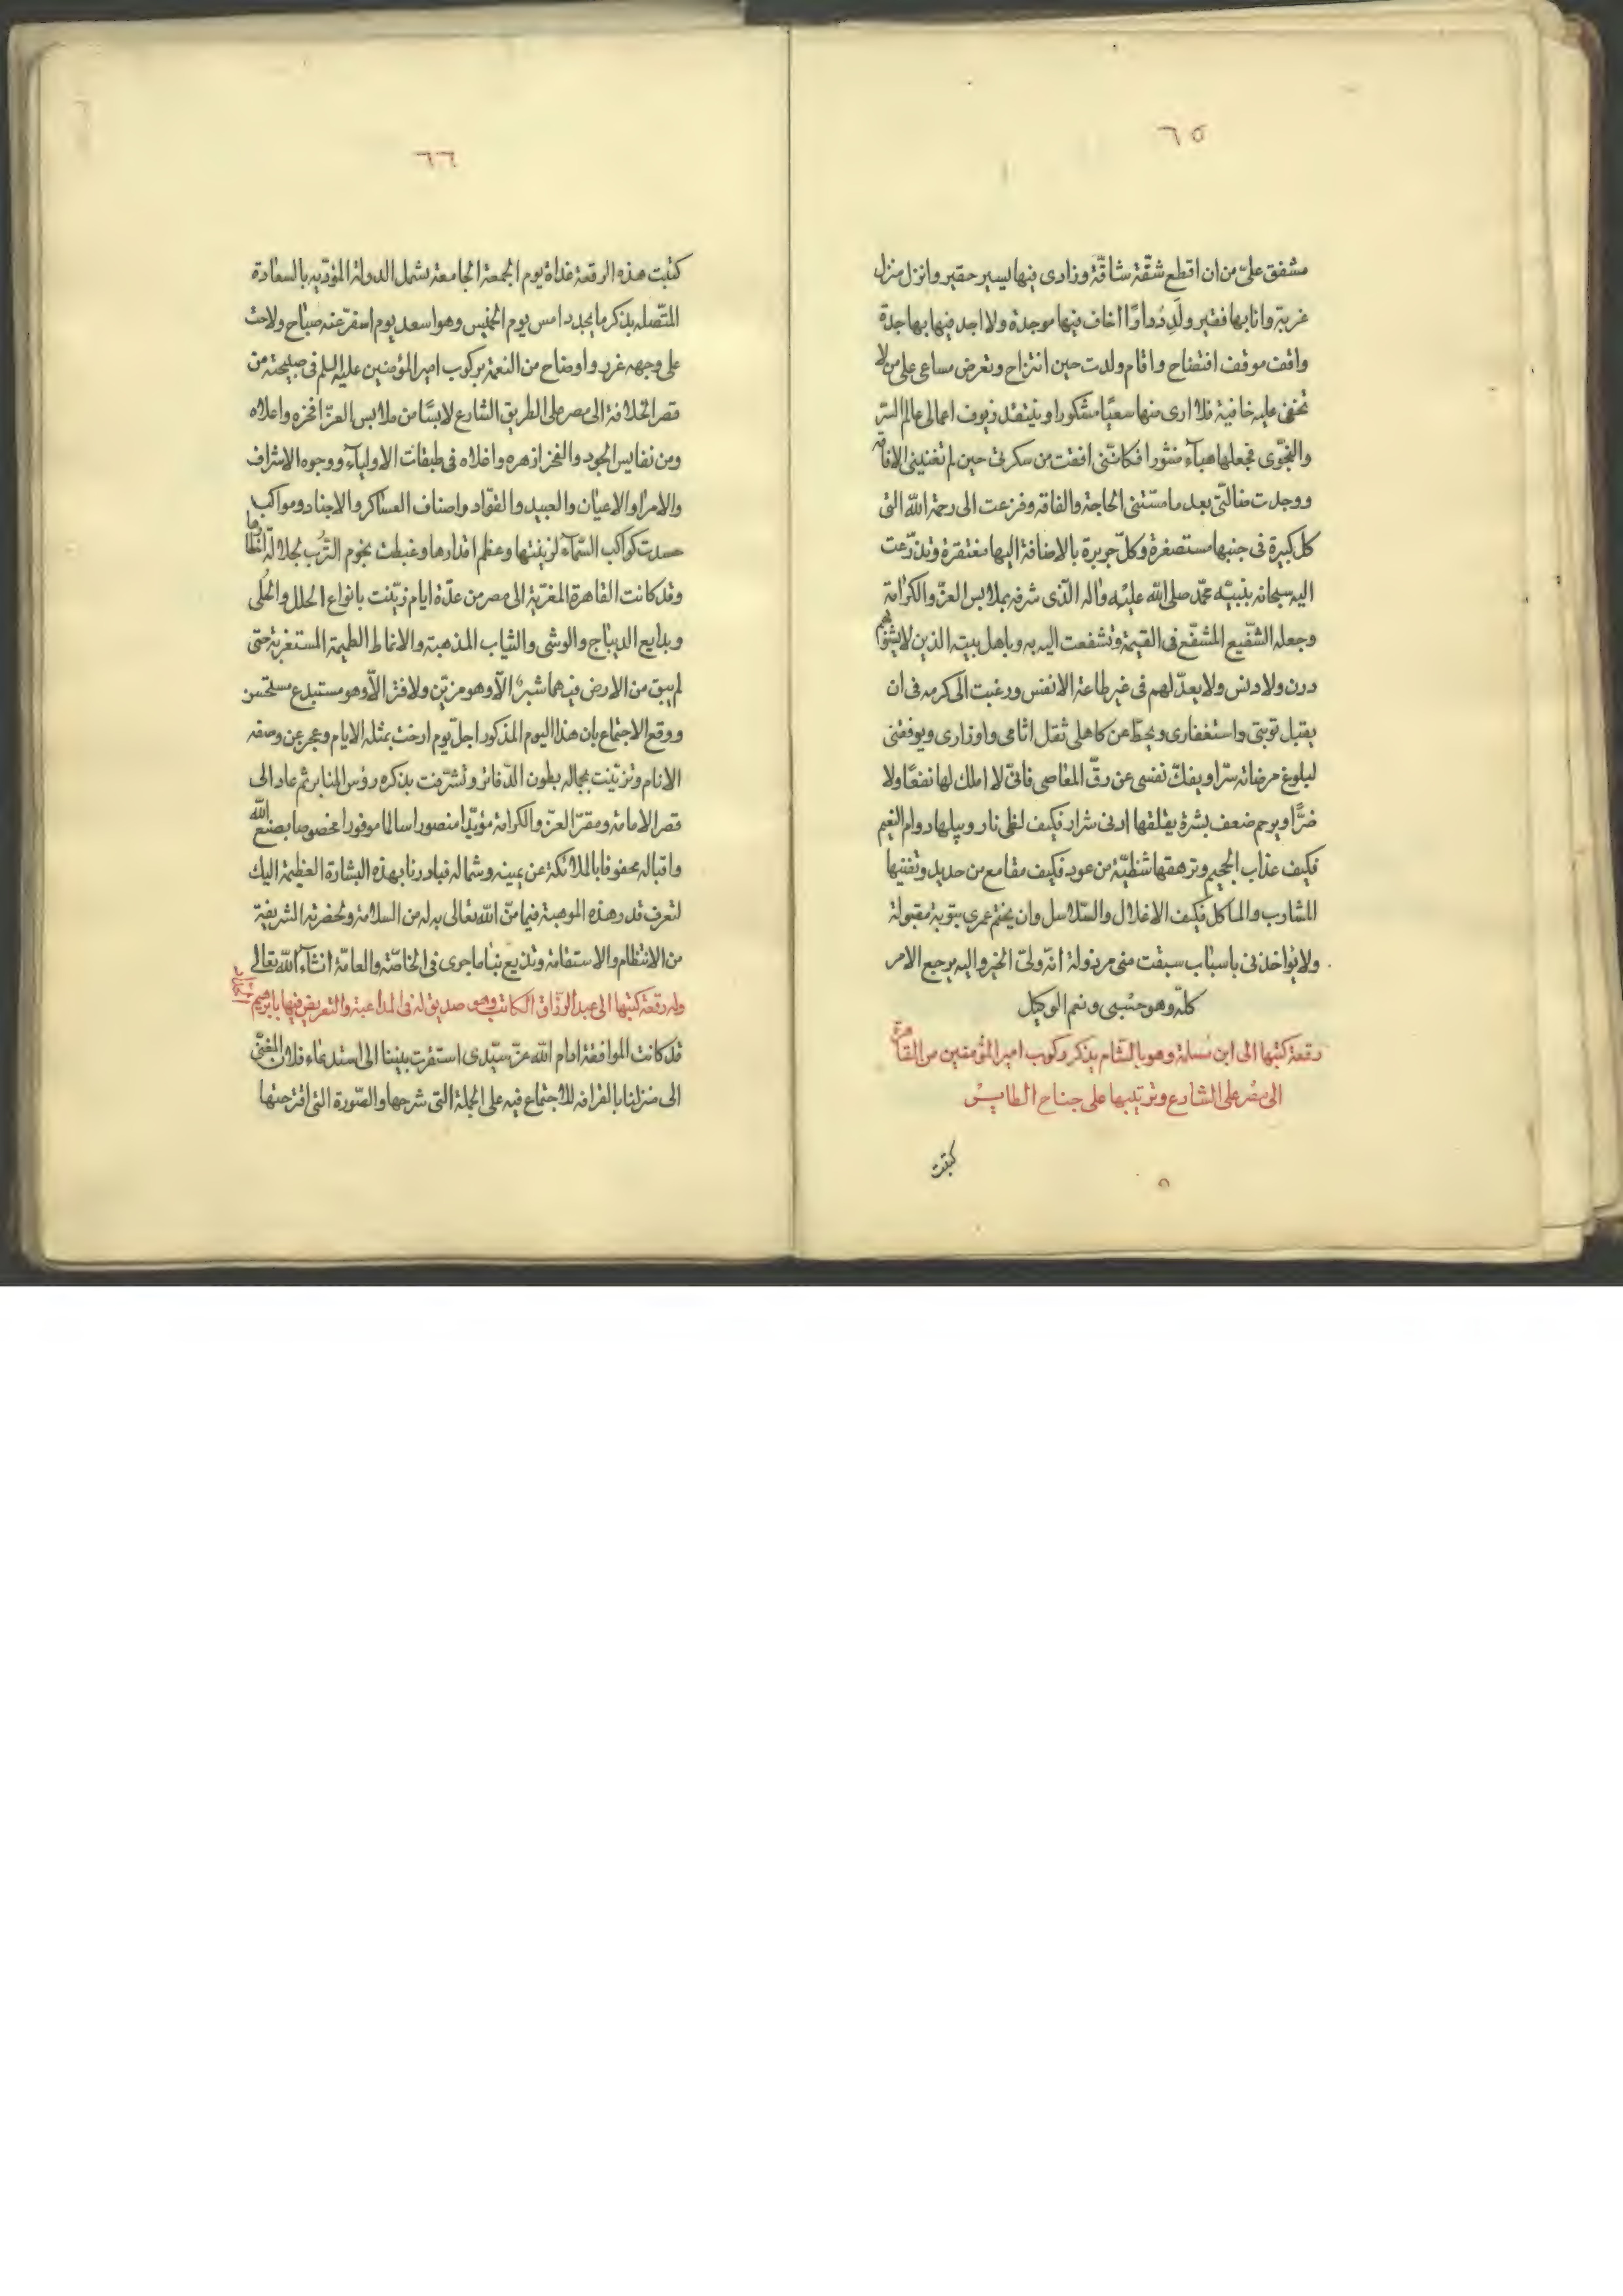 ٦٥
مشفق علىّ من ان اقطع شقّة شاقّة وزادى فيها يسير حقير وانزل منزل
غربة وانا بها فقير ولَدِ دًا اخاف فيها موجدة ولا اجد فيها بها جدة
واقف موقف افتضاح واقام ولدت حين انتزاح وتعرض مساعى على من لا
تخفى عليه خافية فلا ارى منها سعيًا مشكورا وينتقد زيوف اعمالى عالم السّر
والنجوى فجعلها هبآء منثورا فكانّنى افقت من سكرتى حين لم تغننى الافاقة
ووجدت ضالّتى بعد ما مسّتنى الحاجة والفاقه وفزعت الى رحمة الله التى
كل كبيرة فى جنبها مستصغرة وكلّ جريرة بالاضافة اليها مغتفرة وتذرّعت
اليه سبحانه بنبيّه محمّد صلى الله عليْه واله الّذى شرفه بملابس العزّ والكرامة
وجعله الشّفيع المشفّع فى القيمة وتشفعت اليه به وباهل بيته الذين لا يشوبهم
درن ولا دنس ولا يعدّ لهم فى غير طاعة الانفس ورغبت الى كرمه فى ان
يقبل توبتى واستغفارى ويحطّ عن كاهلى ثقل اثامى واوزارى ويوفقنى
لبلوغ مرضاته سّرا ويفكّ نفسى عن رقّ المعاصى فانىّ لا املك لها نفعًا ولا
ضرًّا ويرحم ضعف بشرة يقلقها ادنى شرار فكيف لظى نار ويبلها دوام النعيم
فكيف عذاب الجحيم وترهقها شظيّة من عود فكيف مقامع من حديد وتفنيها
المشارب والماكل فكيف الاغلال والسّلاسل وان يختم عمرى بتوبة مقبولة
ولا يؤاخذنى باسباب سبقت منى مرذولة انّه ولىّ الخير واليه يرجع الامر
كلّه وهو حسْبى ونعم الوكيل
رقعة كتبها الى ابن مسلمة وهو بالشّام يذكر ركوب امير المؤمنين من القاهرة
الى مصْر على الشارع وترتيبها على جناح الطايرْ
كتبت
٦٦
كتبت هذه الرقعة غداة يوم الجمعة الجامعة بشمل الدولة المؤذنيه بالسعادة
المتّصله بذكر ما يجدد امس يوم الخميس وهو اسعد يوم اسفر عنه صباح ولاحت
على وجهه غرر واوضاح من النعمة بركوب امير المؤمنين عليه السلم فى صبيحته من
قصر الخلافة الى مصر على الطريق الشارع لابسًا من ملابس العزّ افخره واعلاه
ومن نفايس الجود والفخر ازهره واغلاه فى طبقات الاوليآء ووجوه الاشراف
والامرا والاعيان والعبيد والقوّاد واصناف العساكر والاجناد ومواكب
حسدت كواكب السّمآء لزينتها وعظم اقدارها وغبطت نجوم التّرب لجلالة
وقد كانت القاهرة المعزّية الى مصر من عدّة ايام زيّنت بانواع الحلل والحلى
وبدايع الديباج والوشى والثياب المذهبة والانماط الطميمة المستغربة حتى
لم يبق من الارض فيهما شبرٌ الاّ وهو مزيّن ولا فتر الاّ وهو مستبدع مستحسن
ووقع الاجتماع بان هذا اليوم المذكور اجلّ يوم ارخت بمثله الايام وعجز عن وصفه
الانام وتزيّنت بجماله بطون الدّفاتر وتشرّفت بذكره رؤس المنابر ثم عاد الى
قصر الامامة ومقرّ العزّ والكرامة مؤيّدا منصورا سالما موفورا مخصوصا بصنع الله
واقباله محفوفا بالملائكة عن يمينه وشماله فبادرنا بهذه البشارة العظيمة اليك
لتعرف قدر هذه الموهبة فيما منّ الله تعالى به له من السلامة ولحضرته الشريفة
من الانتظام والاستقامة وتذيع نبأ ما جرى فى الخاصّة والعامّة انشآء الله تعالى
وله رقعة كتبها الى عبد الرزّاق الكاتب وهو صديق له فى المداعبة والتعريض فيها بابرهيم
قد كانت الموافقة ادام الله عزّ سيّدى استقرت بيننا الى استدعاء فلان المغنّى
الى منزلنا بالقرافه للاجتماع فيه على الجملة التى شرحها والصّورة التى اقترحتها